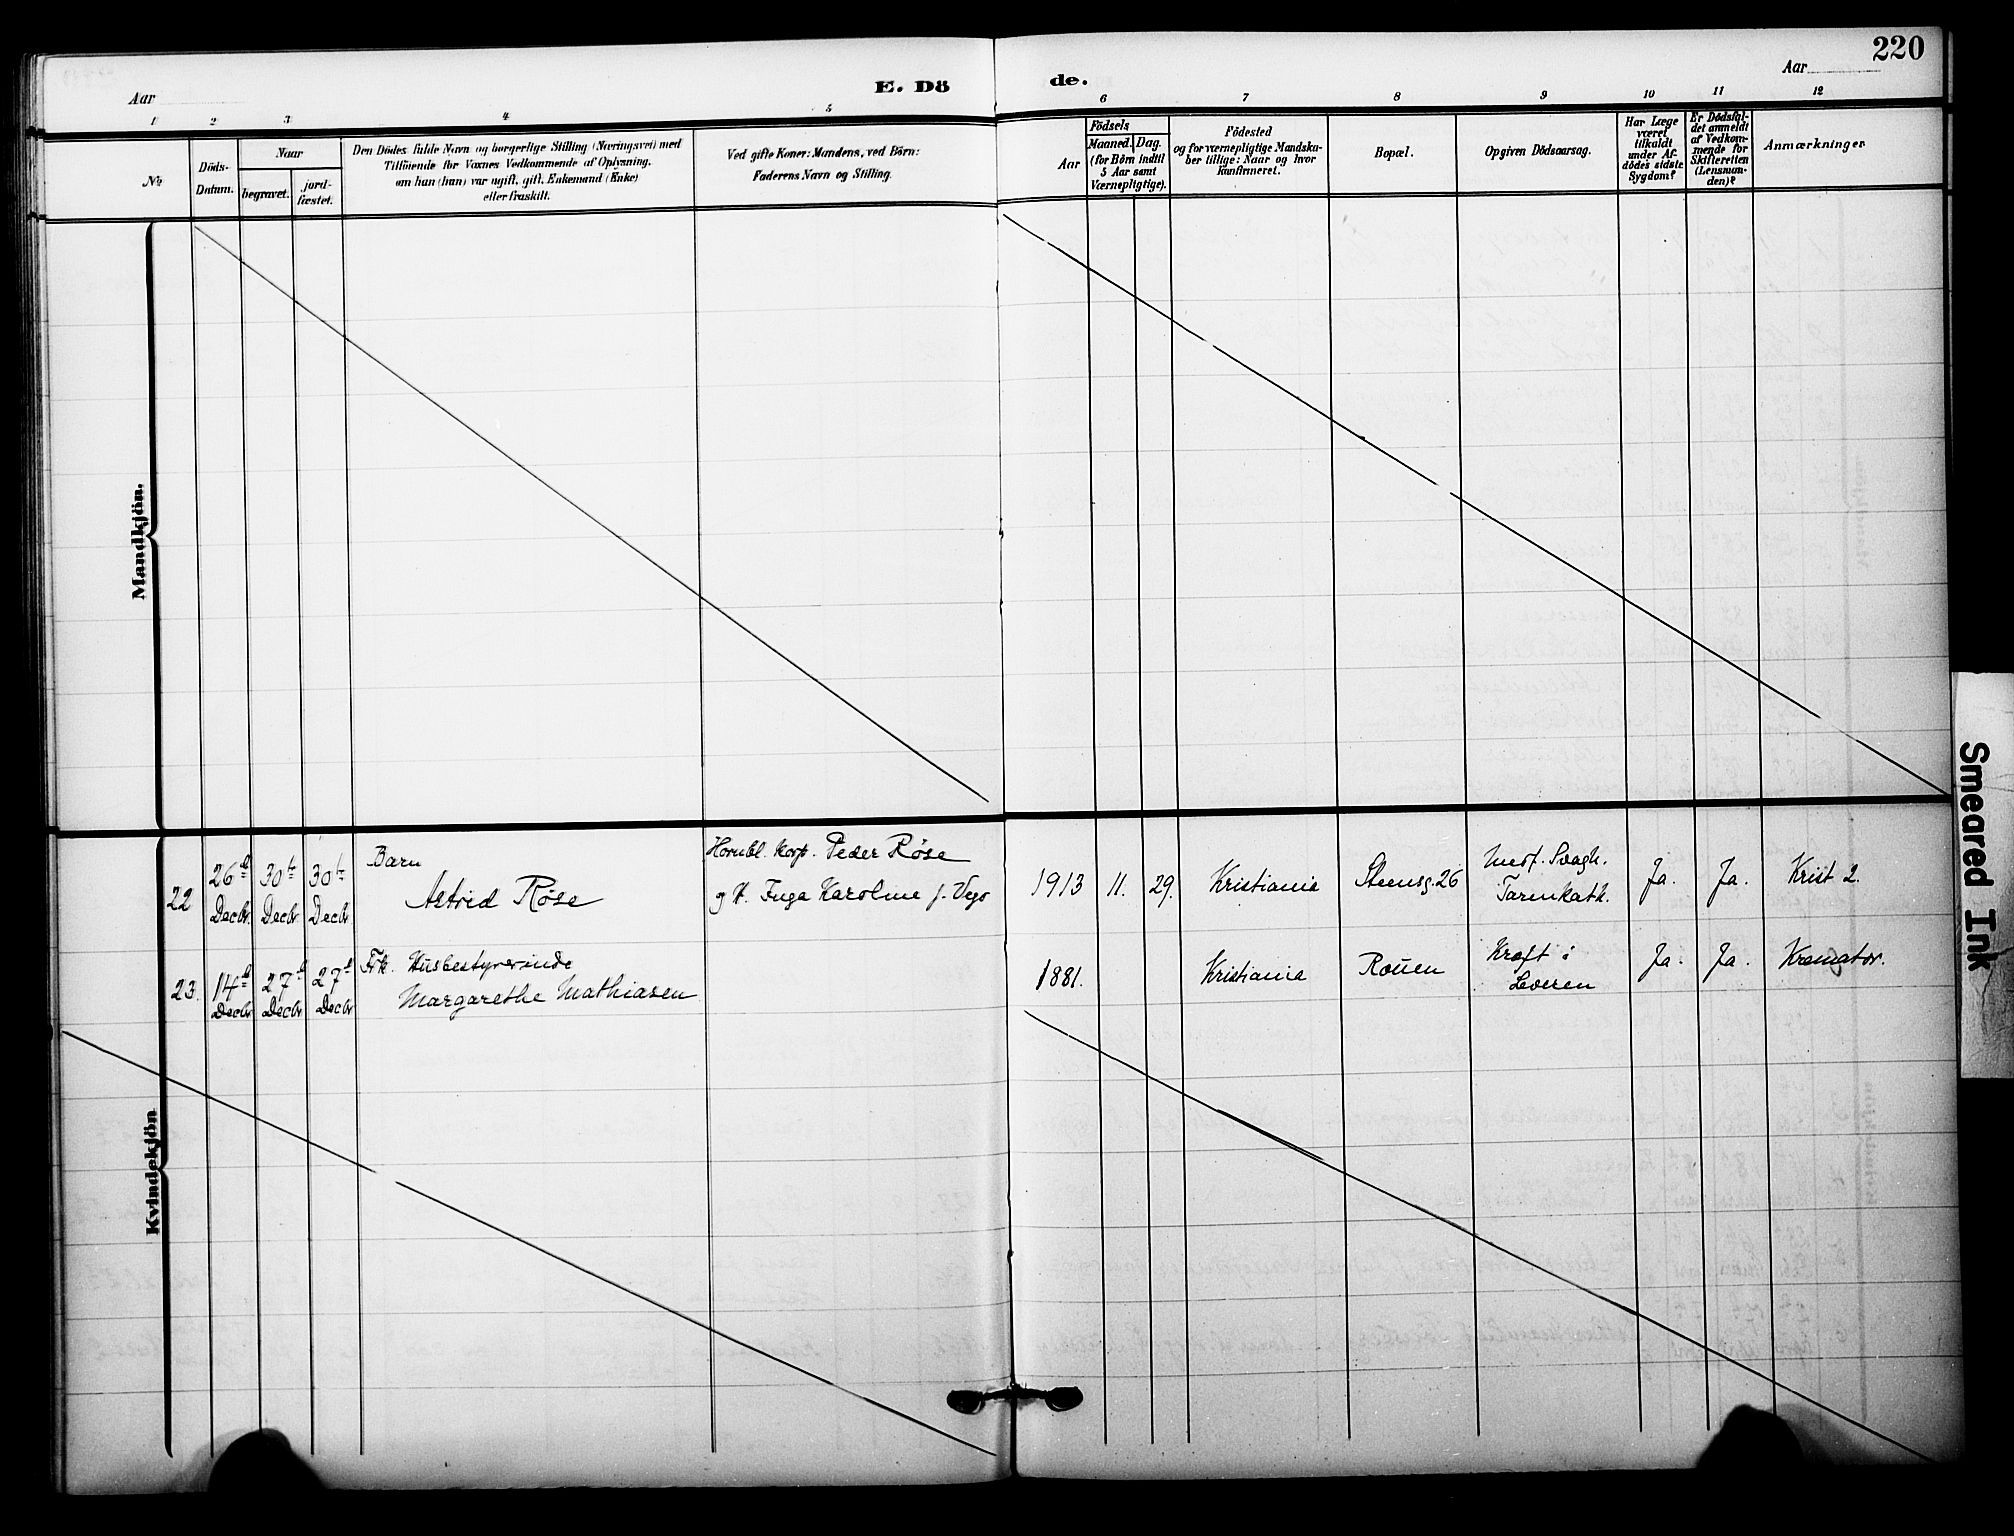 220
E. Dö de.
Aar
Aar
1 2 3 4 5 6 7 8 9 10 11 12
№
Döds-
Datum.
Naar
begravet.
jord-
fæstet.
Den Dödes fulde Navn og borgerlige Stilling (Næringsvei) med
Tilföiende for Voxnes Vedkommende af Oplysning,
om han (hun) var ugift, gift, Enkemand (Enke)
eller fraskilt.
Ved gifte Koner: Mandens, ved Börn:
Faderens Navn og Stilling.
Födsels
Aar
Maaned. Dag.
(for Börn indtil
5 Aar samt
Værnepligtige).
Födested
og for værnepligtige Mandska-
ber tillige: Naar og hvor
konfirmeret.
Bopæl.
Opgiven Dödsaarsag.
Har Læge
været
tilkaldt
under Af-
dödes sidste
Sygdom?
Er Dödsfal-
det anmeldt
af Vedkom-
mende for
Skifteretten
(Lensman-
den)?
Anmærkninger
Mandkjön.
Kvindekjön
22
26d
Decbr.
30te
Decbr
30te
Decbr
Barn
Astrid Röse
Hornbl. Korp. Peder Röse
og H. Inga Karoline f. Vego
1913 11. 29.
Kristiania
Steensg. 26
Medf. Svagh.
Tarmkath.
Ja.
Ja.
Krist 2.
23.
14d
Decbr
27d
Decbr
27d
Decbr
Frk. Husbestyrerinde
Margarethe Mathiasen
1881.
Kristiania
Rouen
Kræft i
Leveren
Ja.
Ja.
Kremator.
Smeared Ink